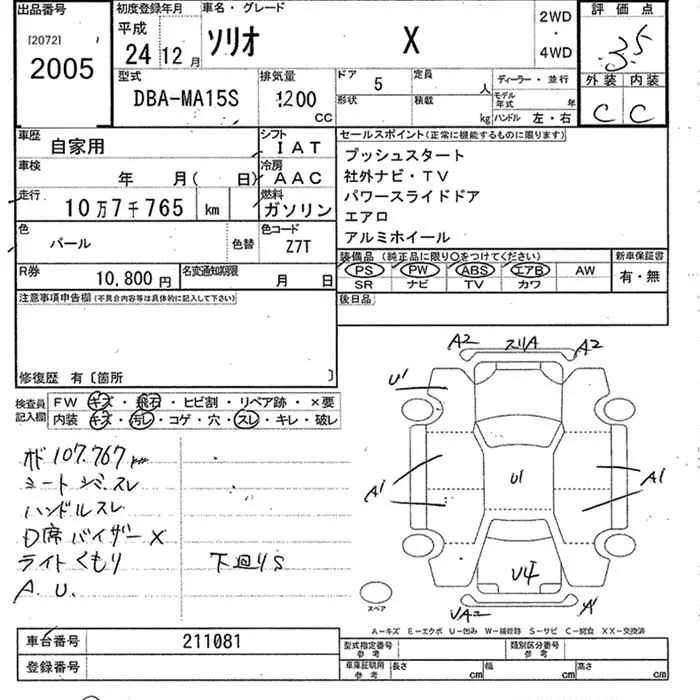 出品番号
[2072]
2005
初度登録年月
平成
24 12月
車名・グレード
ソリオ X
2WD
・
4WD
評価点
3.5
外装 内装
C C
型式
DBA-MA15S
排気量
1200
cc
ドア
5
定員
人
形状
積載
kg
ディーラー・並行
モデル年式 年
ハンドル 左・右
車歴
自家用
シフト
IAT
車検
年 月( 日)
冷房
AAC
走行
10万7千765 km
燃料
ガソリン
色
パール
色替
色コード
Z7T
R券
10,800円
名変通知期限
月 日
セールスポイント(正常に機能するものに限ります)
プッシュスタート
社外ナビ・TV
パワースライドドア
エアロ
アルミホイール
装備品 (純正品に限り○をつけてください)
PS PW ABS エアB AW
SR ナビ TV カワ
新車保証書
有・無
後日品
注意事項申告欄(不具合内容等は具体的に記入して下さい)
修復歴 有〔箇所 〕
検査員記入欄
FW キズ・飛石・ヒビ割・リペア跡・×要
内装 キズ・汚レ・コゲ・穴・スレ・キレ・破レ
オド107,767km
シートシミスレ
ハンドルスレ
D席バイザーX
ライトくもり
下廻りS
A.U.
A2 スリA A2
U1
A1 U1 A1
U4
UA2 A1
スペア
A-キズ E-エクボ U-凹み W-補修跡 S-サビ C-腐食 XX-交換済
車台番号
211081
登録番号
型式指定番号
参考
類別区分番号
参考
車庫証明用
参考
長さ cm 幅 cm 高さ cm